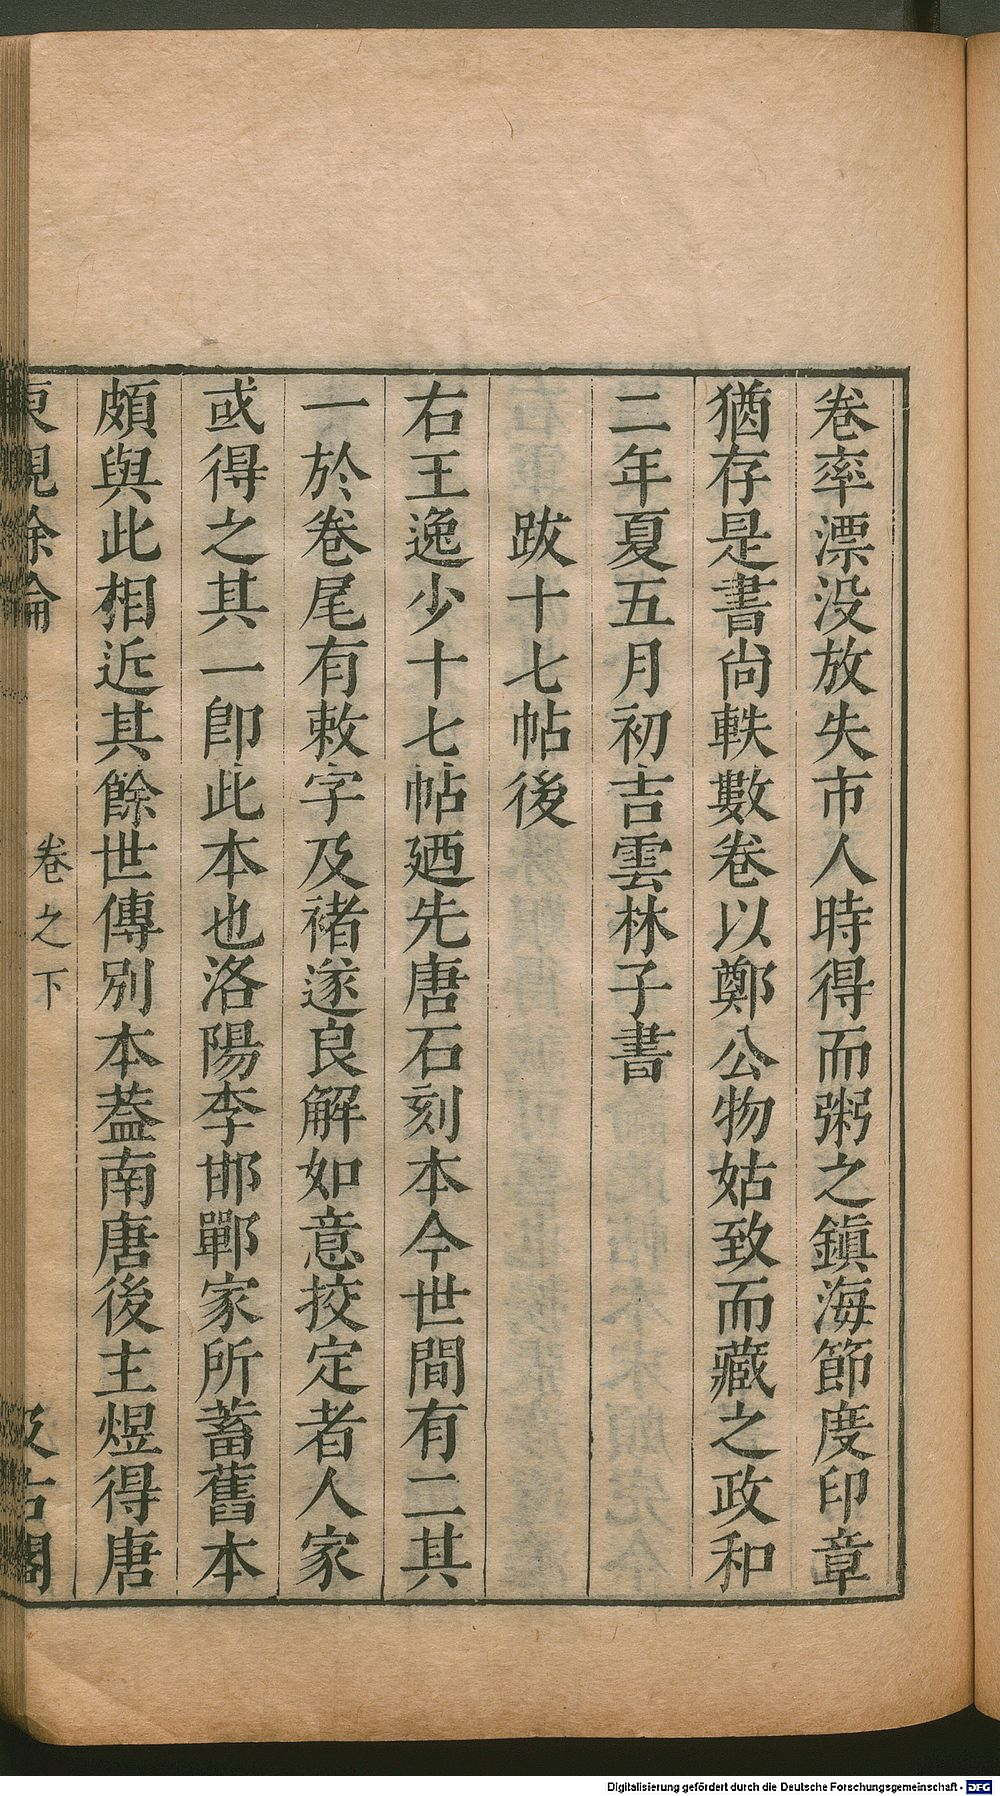 卷率漂没放失市人時得而粥之鎭海節度印章
猶存是書尚軼數卷以鄭公物姑致而藏之政和
二年夏五月初吉雲林子書
跋十七帖後
右王逸少十七帖廼先唐石刻本今世間有二其
一於卷尾有敕字及褚遂良解如意挍定者人家
或得之其一卽此本也洛陽李邯鄲家所蓄舊本
頗與此相近其餘世傳別本葢南唐後主煜得唐
東觀餘論 卷之下 汲古閣
Digitalisierung gefördert durch die Deutsche Forschungsgemeinschaft - DFG